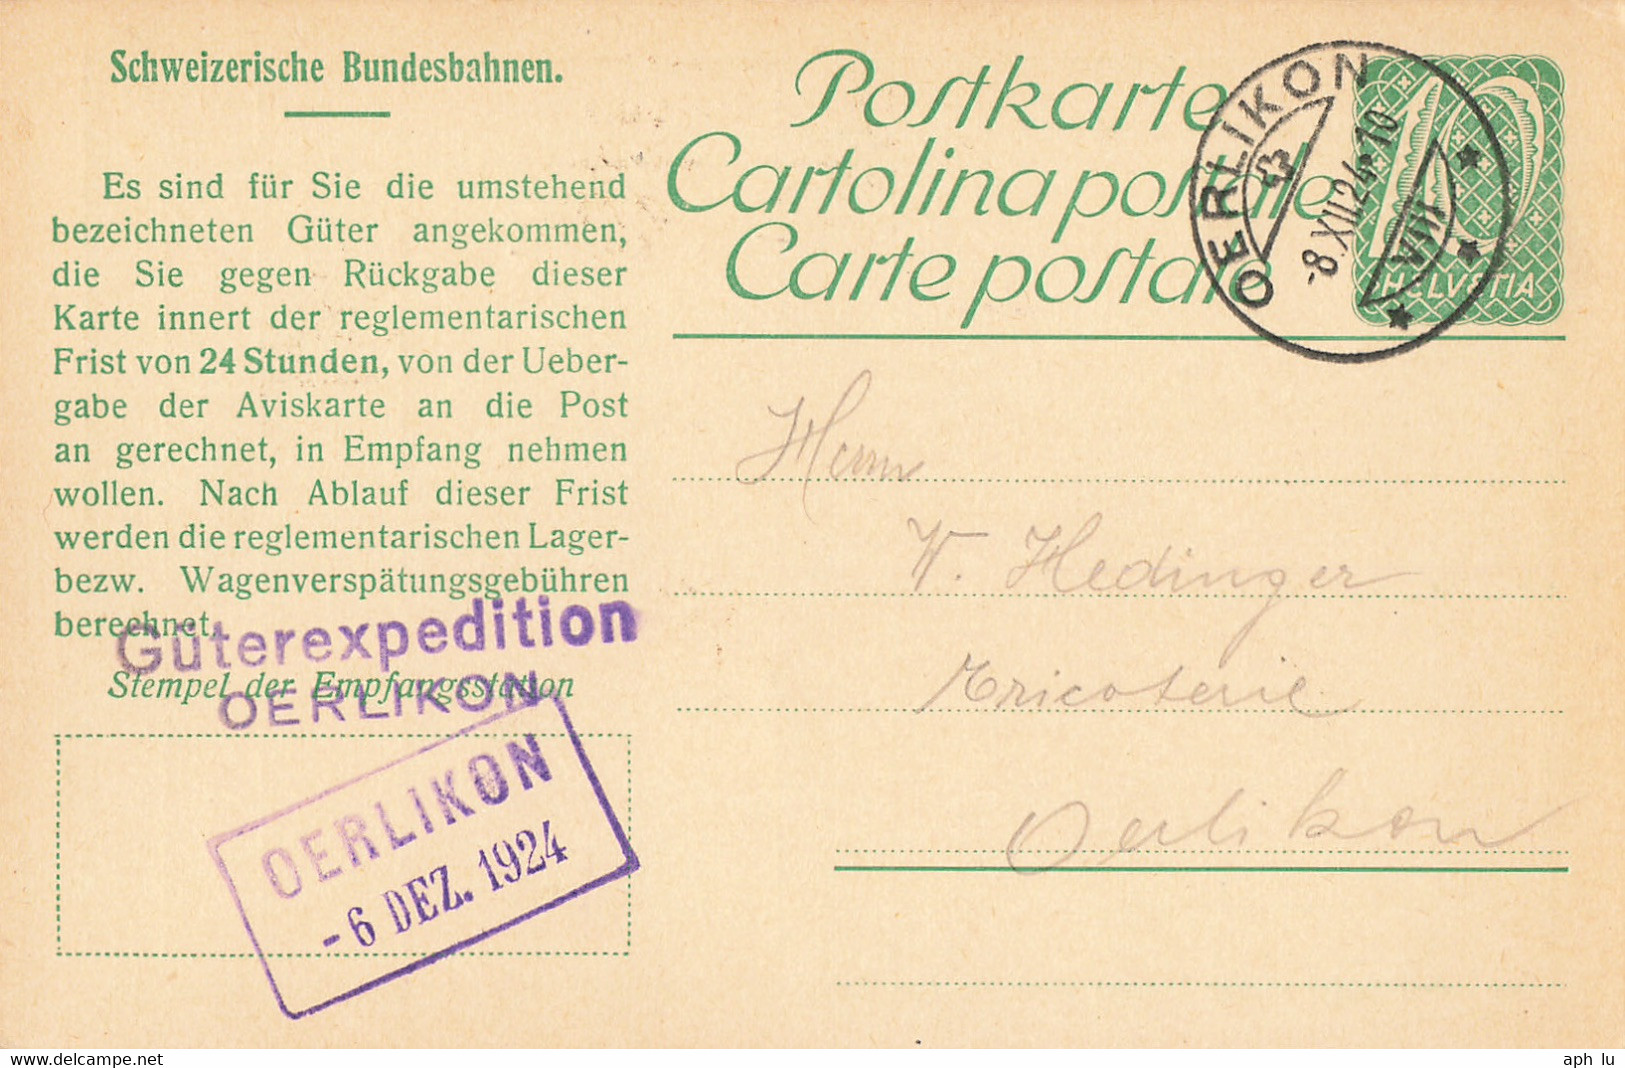 Schweizerische Bundesbahnen.
Es sind für Sie die umstehend
bezeichneten Güter angekommen,
die Sie gegen Rückgabe dieser
Karte innert der reglementarischen
Frist von 24 Stunden, von der Ueber-
gabe der Aviskarte an die Post
an gerechnet, in Empfang nehmen
wollen. Nach Ablauf dieser Frist
werden die reglementarischen Lager-
bezw. Wagenverspätungsgebühren
berechnet.
Güterexpedition
Stempel der Empfangsstation
OERLIKON
OERLIKON
- 6 DEZ. 1924
Postkarte
Cartolina postale
Carte postale
OERLIKON
-8.XII.24.-10
VIII
10
HELVETIA
Herrn
W. Hedinger
Tricoterie
Oerlikon
www.delcampe.net
aph lu